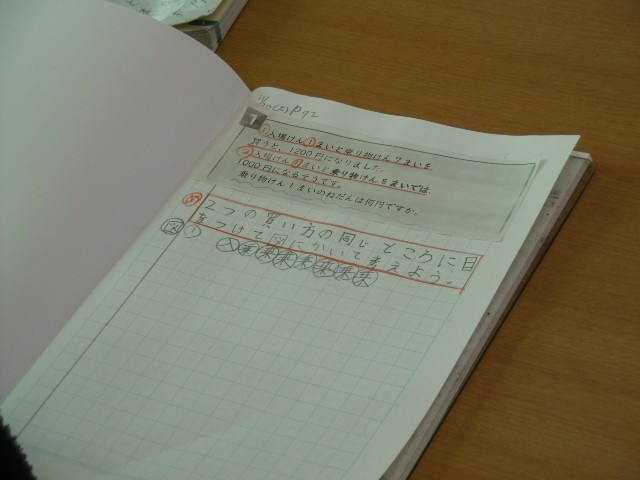 11/11(火) P72
1
①入場けん①まいと乗り物けん7まいを
買うと、1200円になりました。
②入場けん①まいと乗り物けん5まいでは、
1000円になるそうです。
乗り物けん1まいのねだんは何円ですか。
め 2つの買い方の同じところに目
をつけて図にかいて考えよう。
図 ① 入乗乗乗乗乗乗乗